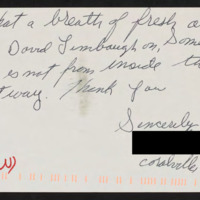 hat a breath of fresh a
David Limbaugh on, Some
is not from inside t
tway. Thank you
Sincerely
coralville